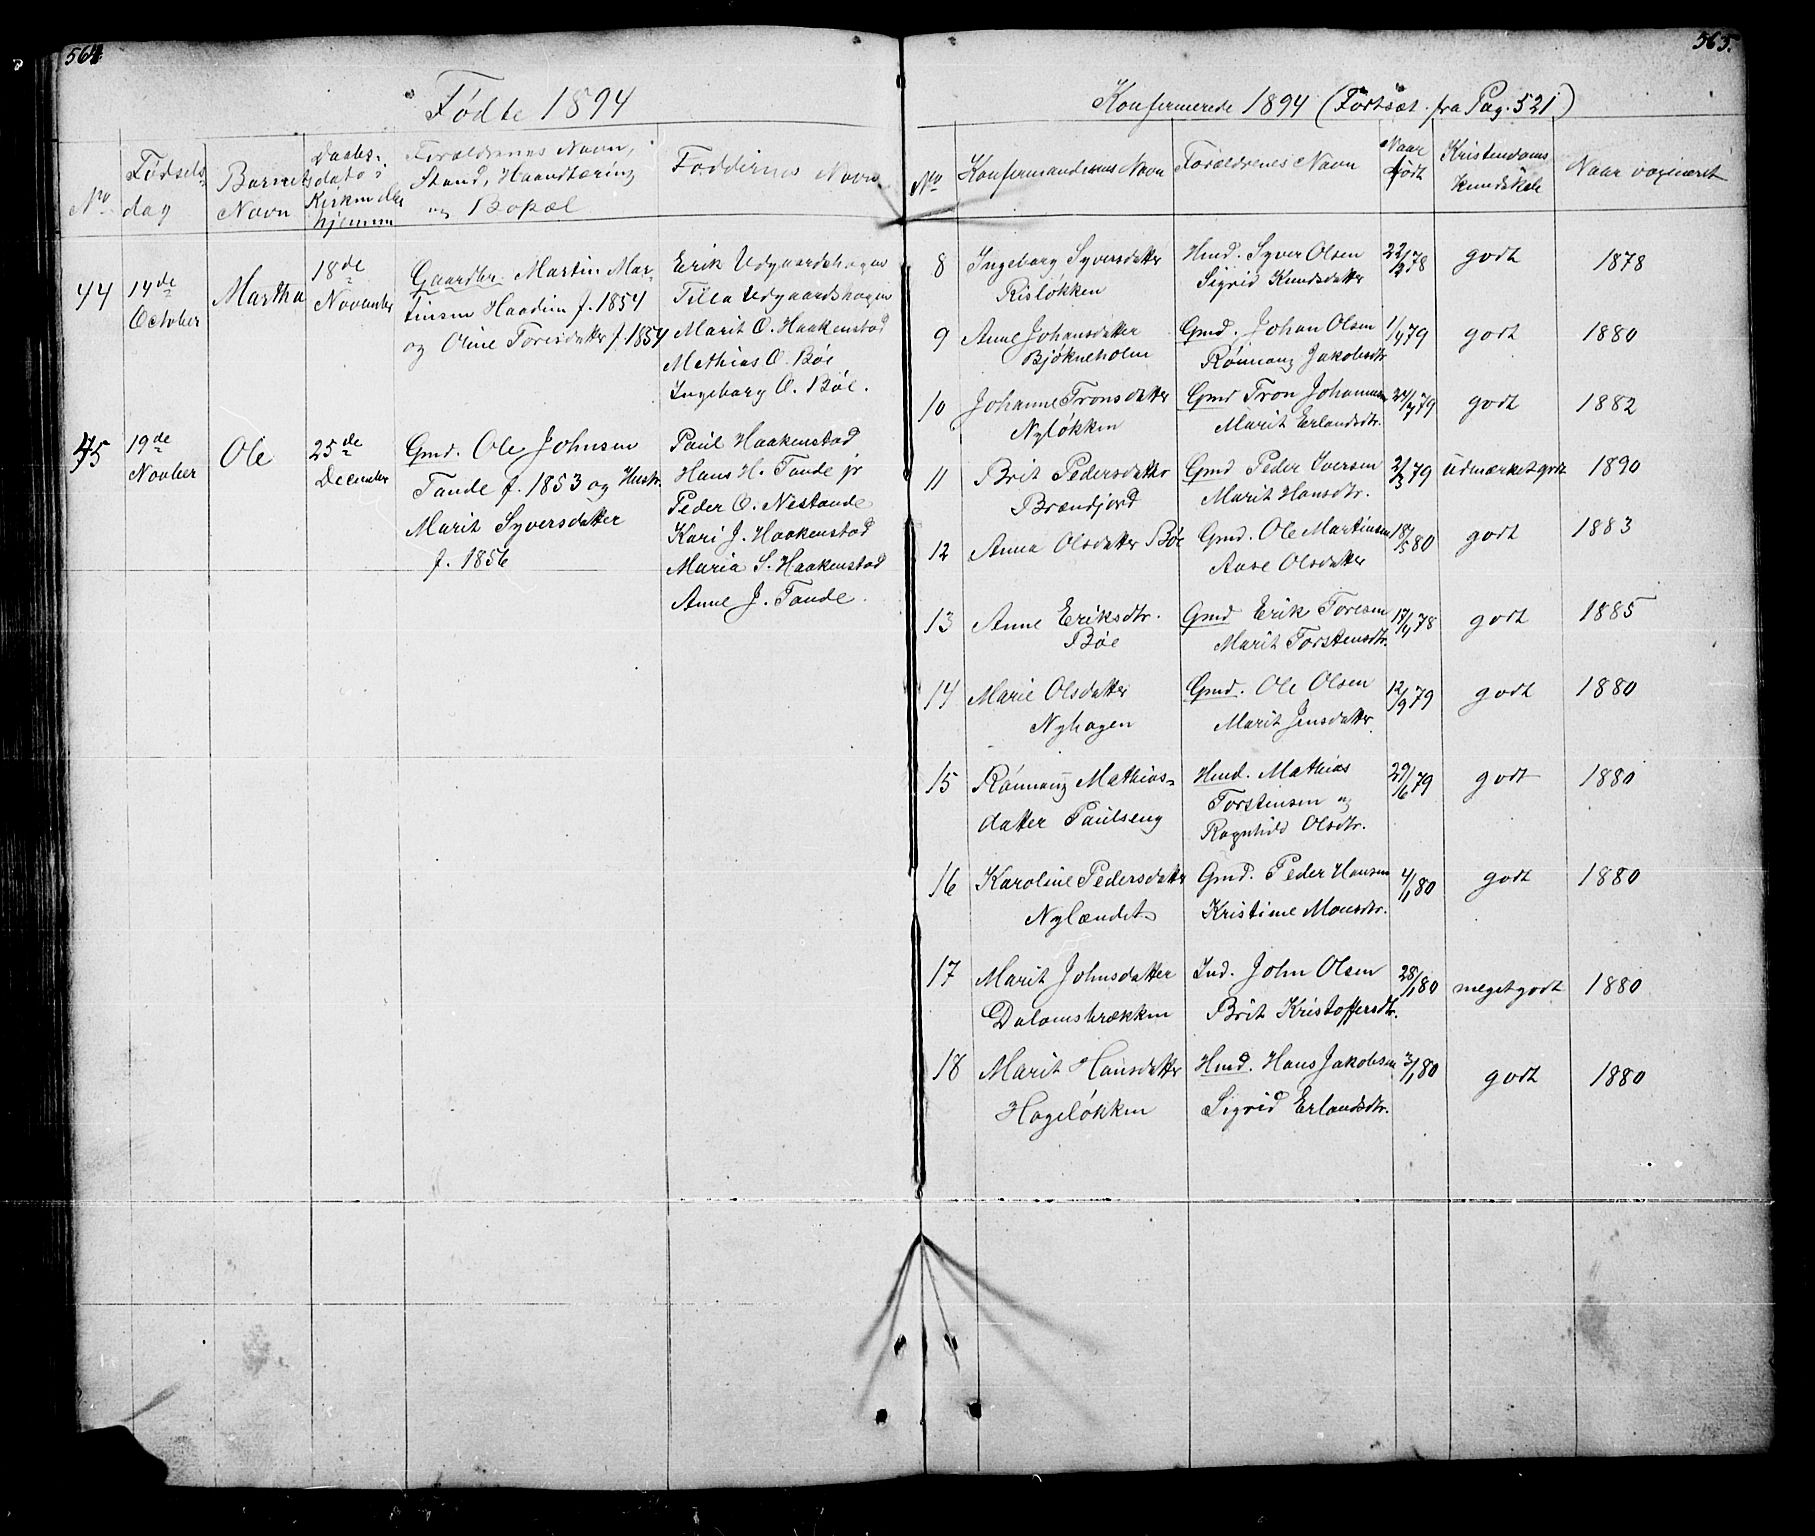 564
Fødte 1894
No
Fødsels-
dag
Barnets
Navn
Daabs-
dato i
Kirken eller
hjemme
Forældrenes Navn,
Stand, Haandtæring
og Bopæl
Faddernes Navn
44
14de
October
Martha
18de
November
Gaardbr. Martin Mar-
tinsen Haadem f. 1854
og Oline Toresdatter f. 1854
Erik Udgaardshagen
Tilla Udgaardshagen
Marit O. Haakenstad
Mathias O. Bøe
Ingeborg O. Bøe.
45
19de
Novber
Ole
25de
December
Gmd. Ole Johnsen
Tande f. 1853 og Hustr.
Marit Syversdatter
f. 1856
Paul Haakenstad
Hans H. Tande jr
Peder O. Nestande
Kari J. Haakenstad
Maria S. Haakenstad
Anne J. Tande.
565.
Konfirmerede 1894 (Fortsæt. fra Pag. 521)
No
Konfirmandernes Navn
Forældrenes Navn
Naar
født
Kristendoms
kundskab
Naar vaccineret
8
Ingeborg Syversdatter
Risløkken
Hmd. Syver Olsen
Sigrid Knudsdatter
78
godt
1878
9
Anne Johansdatter
Bjøkneholm
Gmd. Johan Olsen
Rønnaug Jakobsdtr
79
godt
1880
10
Johanne Tronsdatter
Nyløkken
Gmd Tron Johannesen
Marit Erlandsdtr.
79
godt
1882
11
Brit Pedersdatter
Brændjord
Gmd Peder Iversen
Marit Hansdtr.
2/3 79
udmærket godt
1890
12
Anna Olsdatter Bøe
Gmd. Ole Martinsen
Anne Olsdatter
18/5 80
godt
1883
13
Anne Eriksdtr.
Bøe
Gmd Erik Toresen
Marit Torstensdtr.
78
godt
1885
14
Marie Olsdatter
Nyhagen
Gmd. Ole Olsen
Marit Jensdatter
12/9 79
godt
1880
15
Rønnaug Mathias-
datter Paulseng
Hmd. Mathias
Torstensen og
Ragnhild Olsdtr.
29/6 79
godt
1880
16
Karoline Pedersdatter
Nylændet
Gmd. Peder Hansen
Kristine Monsdtr.
4/1 80
godt
1880
17
Marit Johnsdatter
Dalomsbrækken
Ind. John Olsen
Brit Kristoffersdtr.
28/1 80
meget godt
1880
18
Marit Hansdatter
Hageløkken
Hmd. Hans Jakobsen
Sigrid Erlandsdtr.
80
godt
1880